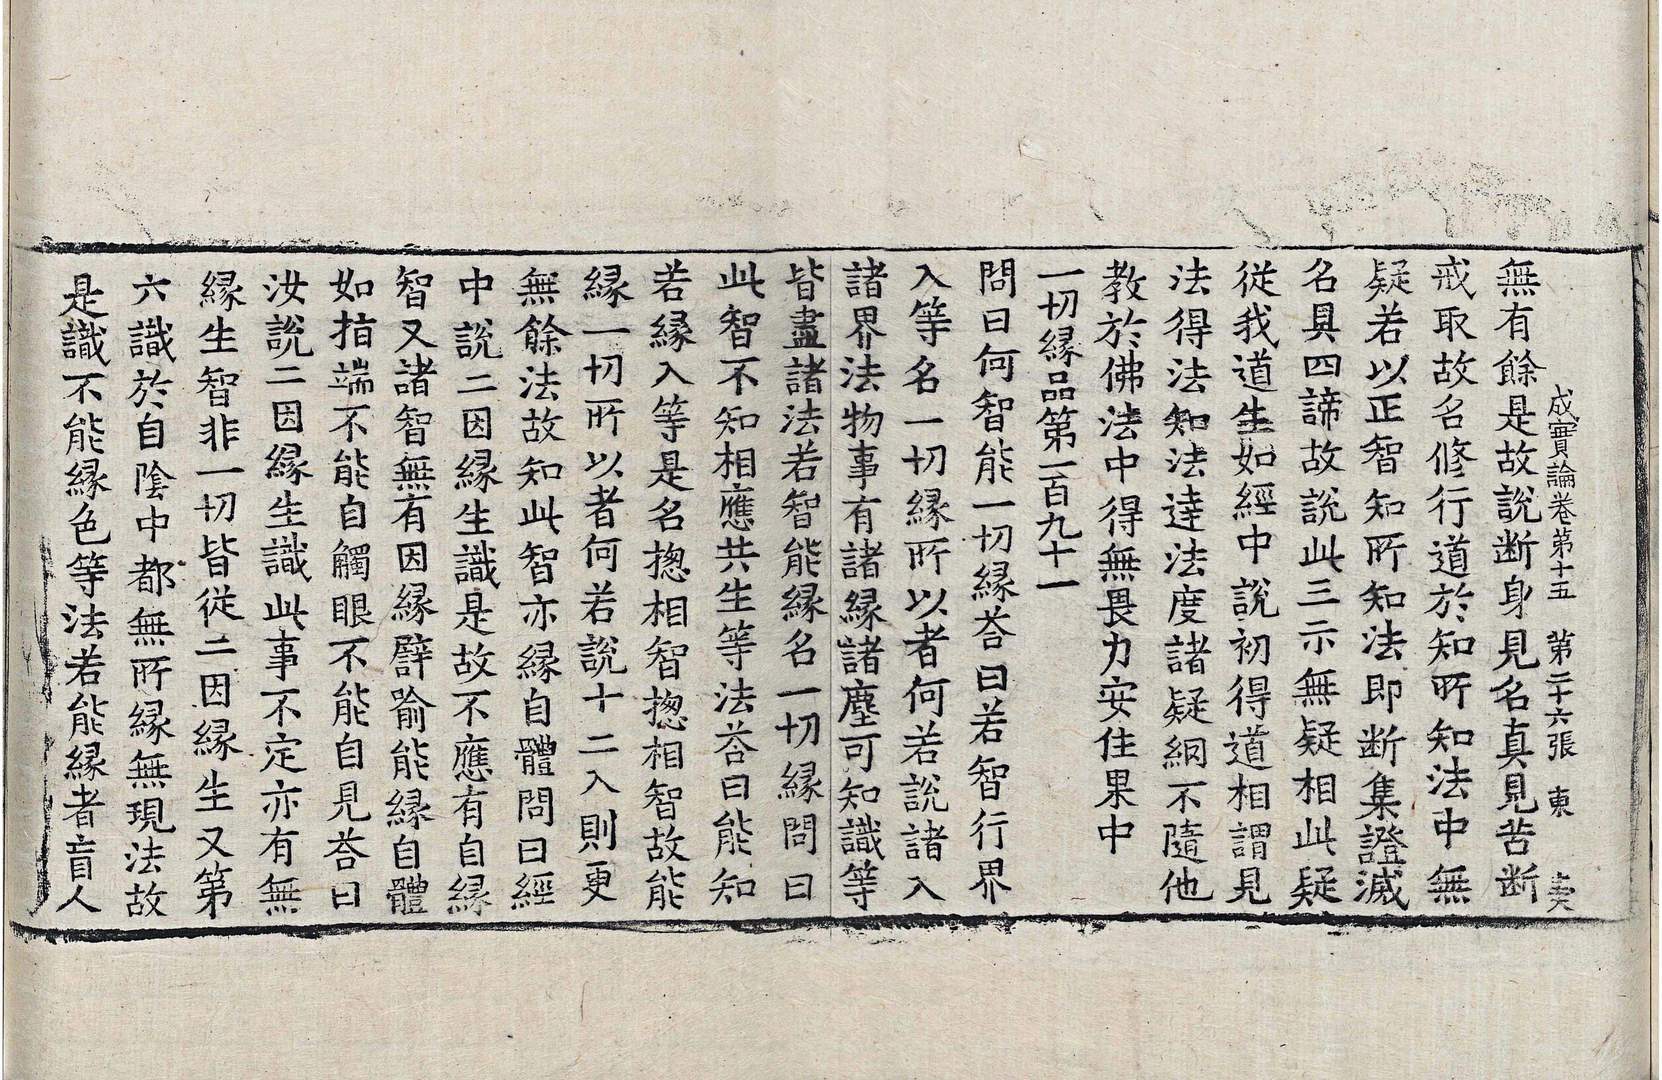 成實論卷第十五 第二十六張 東
無有餘是故說断身見名真見苦断
戒取故名修行道於知所知法中無
疑若以正智知所知法即断集證滅
名具四諦故說此三示無疑相此疑
從我道生如經中說初得道相謂見
法得法知法達法度諸疑網不隨他
教於佛法中得無畏力安住果中
一切縁品第一百九十一
問曰何智能一切縁荅曰若智行界
入等名一切縁所以者何若說諸入
諸界法物事有諸縁諸塵可知識等
皆盡諸法若智能縁名一切縁問曰
此智不知相應共生等法荅曰能知
若縁入等是名揔相智揔相智故能
縁一切所以者何若說十二入則更
無餘法故知此智亦縁自體問曰經
中說二因縁生識是故不應有自縁
智又諸智無有因縁譬喻能縁自體
如指端不能自觸眼不能自見荅曰
汝說二因縁生識此事不定亦有無
縁生智非一切皆從二因縁生又第
六識於自陰中都無所縁無現法故
是識不能縁色等法若能縁者盲人